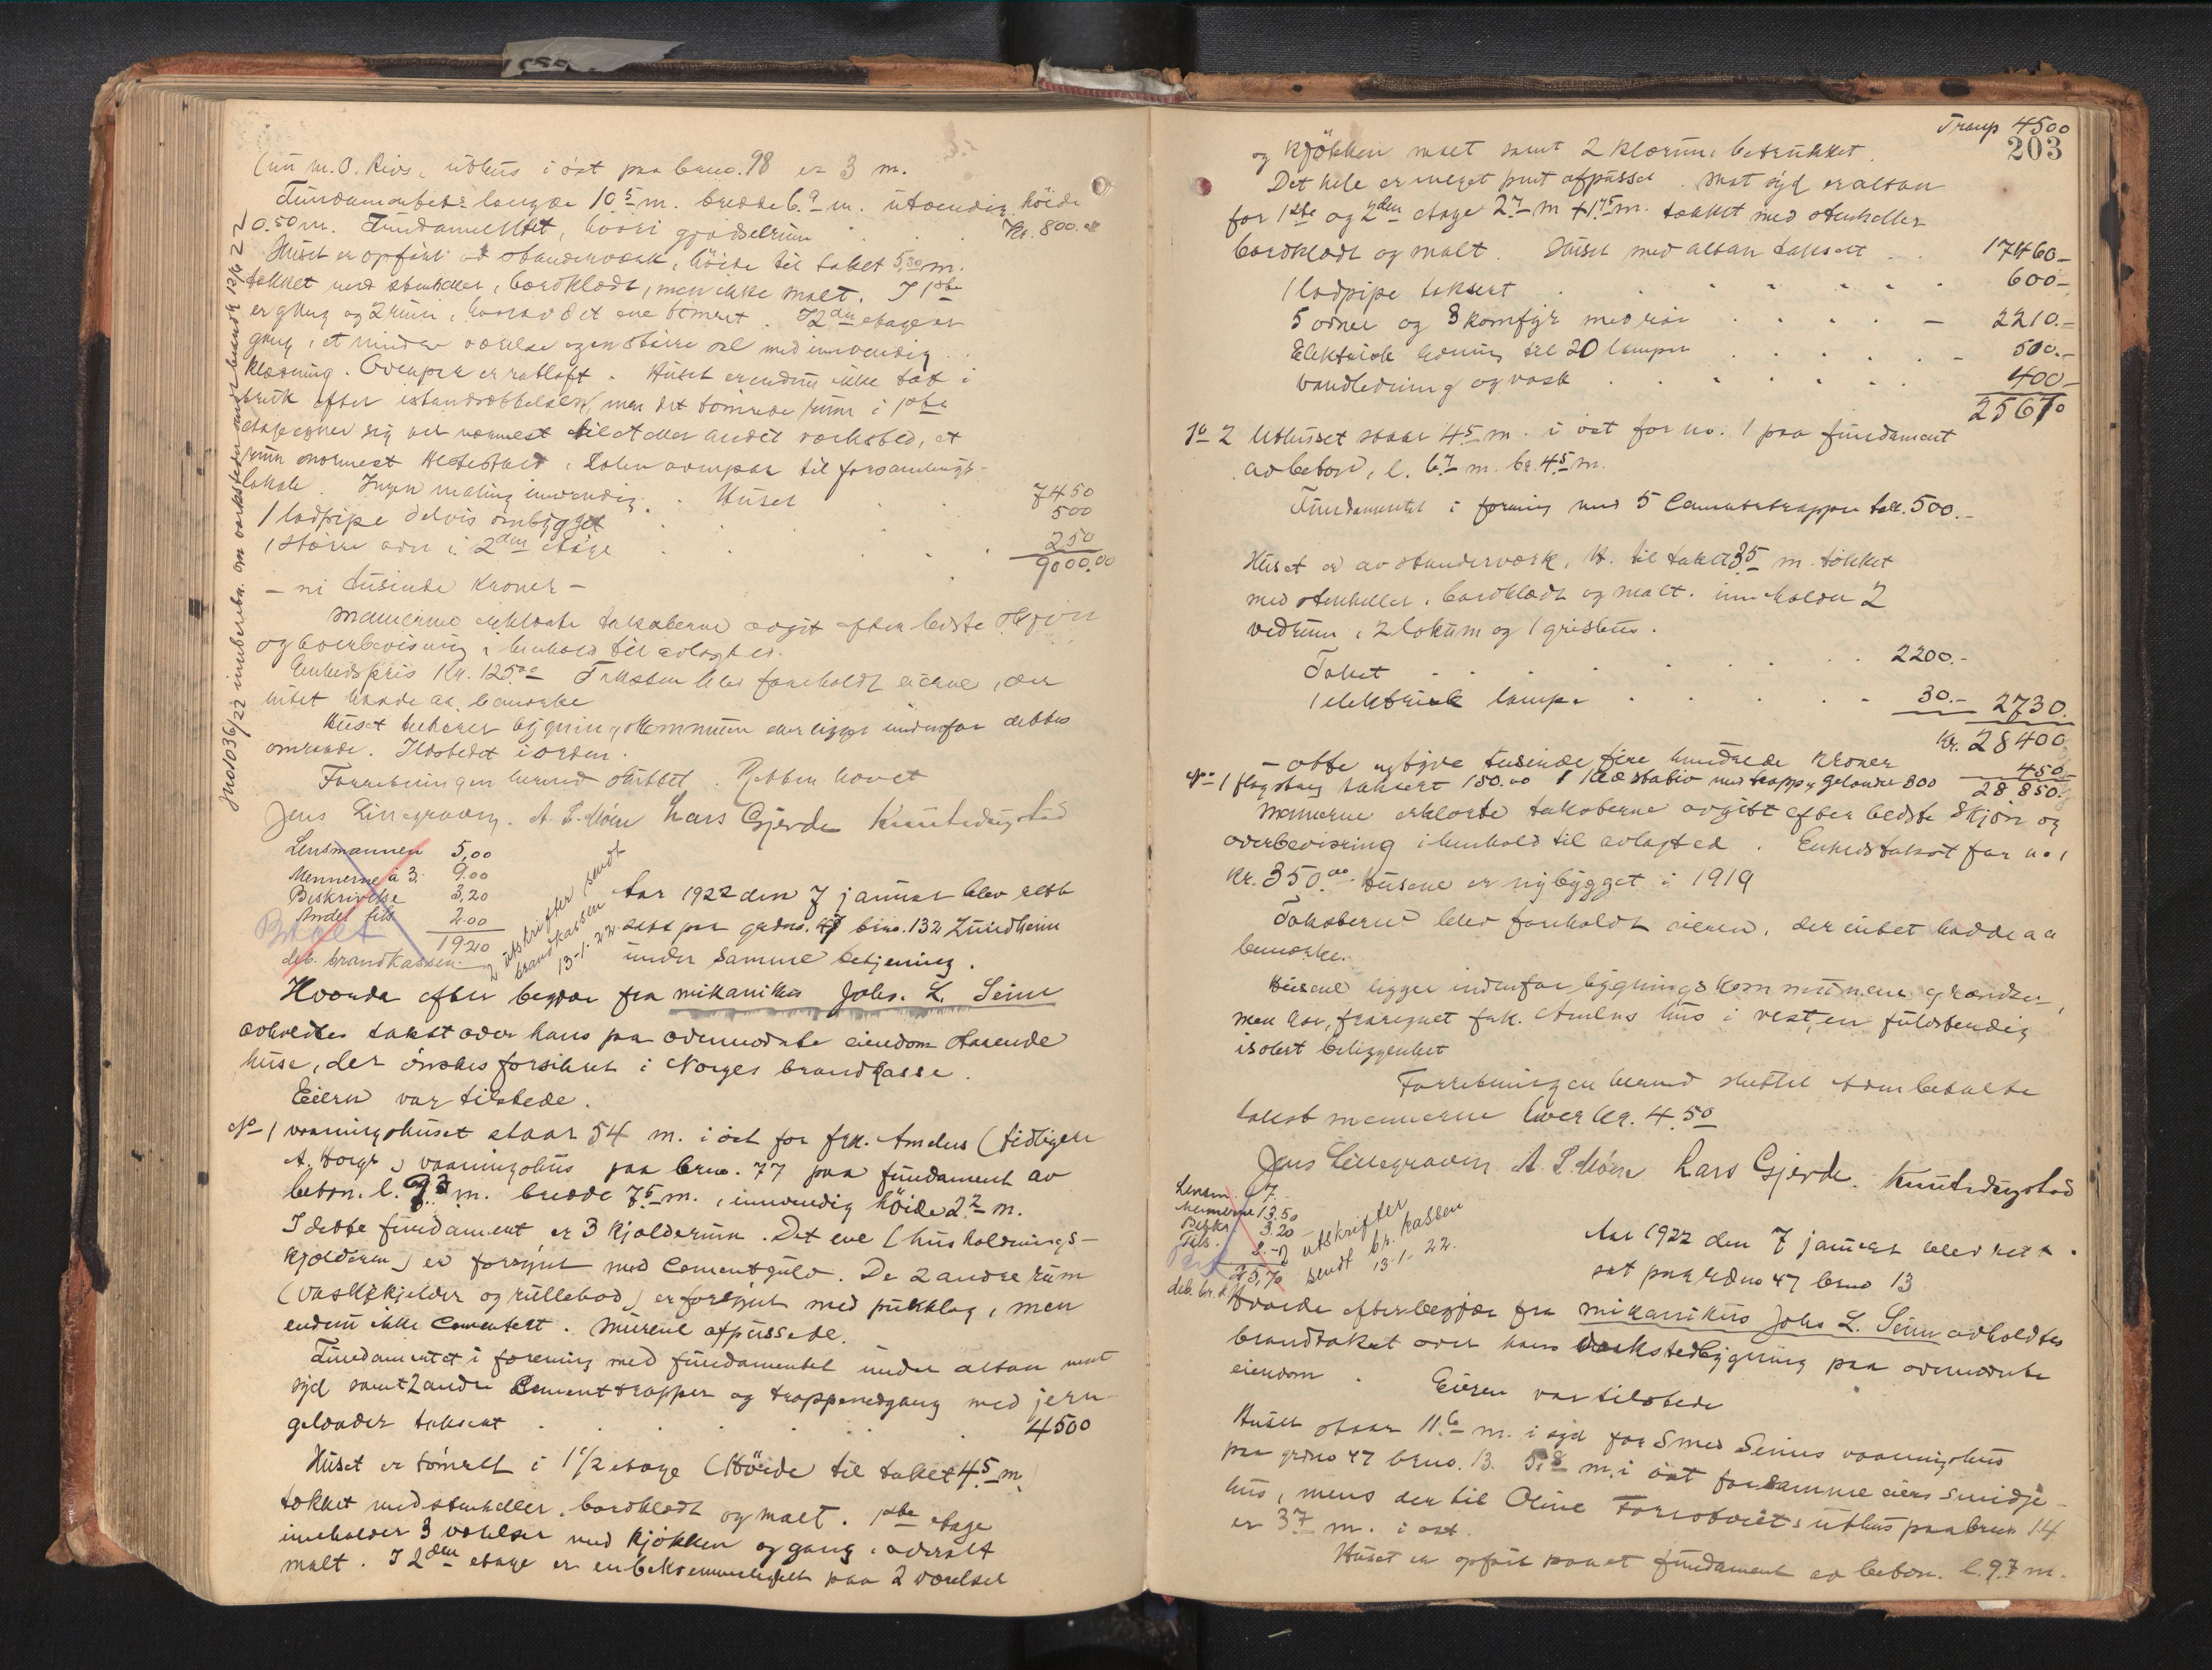 (nu M. O. uthus i öst paa brno. 98 er 3 m.
Fundamentets længde 10 5 m. bredde 6 9 m. utvendig höide
0.50 m. Fundamentet, hvori gjödselrum . . . Kr. 800.00
Huset er opfört av standerverk, höide til taket 5,30 m.
tækket med stenheller, bordklædt, men ikke malt. I 1ste
er gang og 2 rum, hvorav det ene tömret. I 2den etage er
gang, et mindre værelse og en större sal med innvendig
klædning. Ovenpaa er rotloft. Huset er endnu ikke tat i
bruk efter istandsættelsen, men det tömrede rum i 1ste
etage egner sig vel nærmest til et eller andet verksted, et
rum nærmest, Salen ovenpaa til forsamlings-
lokale. Ingen maling innvendig. Huset . . 7450
1 ladpipe delvis ombygget . . . 500
1 större ovn i 2den etage . . . 250
9000.00
- ni tusinde kroner -
Mænnerne erklærte taksterne avgit efter bedste skjön
og overbevisning i henhold til avlagt ed.
Enhedspris Kr. 125.00 Taksten blev foreholdt eierne, der
intet havde at bemerke
Huset bygningskommunen eller ligger indenfor dettes
omraade. Ildstedet i orden.
Forretningen hermed sluttet. Retten hævet
Jens Lillegraven. A. P. Moen Lars Gjerde Knut
Lensmannen 5,00
Mennerne à 3.- 9.00
Beskrivelse 3,20
Andel tils. 2.00
Betalt 19.20
deb. brandkassen.
2 utskrifter sendt
brandkassen
13-1-22.
Jnal 036/22 innberetn. om verksteder 12/4 22
Aar 1922 den 7 januar blev rett
satt paa gardno. 47 brno. 132 Lundheim
under samme betjening.
Hvorda efter begjær fra mikaniker Johs. L. Seim
avholdtes takst over hans paa ovennævnte eiendom staaende
huse, der önskes forsikret i Norges brandkasse.
Eieren var tilstede.
No 1 vaaningshuset staar 54 m. i öst for frk. Amdus (tidligere
A. Borge) vaaningshus paa brno. 77 paa fundament av
beton. l. 9 3 m. bredde 7 5 m., innvendig höide 2 2 m.
I dette fundament er 3 kjælderrum. Det ene (husholdnings-
kjælderen) er forsynt med Cementgulv. De 2 andre rum
(vaskekjelder og rullebod) er forsynt med pukklag, men
endnu ikke Cementert. Murene afpussede.
Fundamentet i forening med fundamentet under altan mot
syd samt 2 andre Cementtrapper og trappenedgang med jern
gelænder taksert . . . . . 4500
Huset er tömret i 1 1/2 etage (Höide til taket 4 5 m.
tækket med stenheller, bordklædt og malt. 1ste etage
inneholder 3 værelser med kjökken og gang, overalt
malt. I 2den etage er en bekvemmelighet paa 2 værelser
Transp 4500
203
og kjökken malt samt 2 klærum betrukket.
Det hele er meget pent afpusset. Mot syd er altan
for 1ste og 2den etage 2 7 m + 1 75 m. tækket med stenheller
bordklædt og malt. Huset med altan taksert . . 17460-
1 ladpipe taksert . . . . 600-
5 ovner og 3 komfyr med rör . . . . - 2210.-
Elektrisk ledning til 20 lamper . . . . - 500.-
Vandledning og vask . . . . 400-
25670
No 2 Uthuset staar 4 5 m. i öst for no. 1 paa fundament
av beton, l. 6 7 m. br. 4 5 m.
Fundamentet i forening med 5 Cementtrapper tak. 500.-
Huset er av standerværk, H. til taket 3 5 m. tækket
med stenheller, bordklædt og malt. inneholder 2
vedrum, 2 lokum og 1 grishus.
Taket . . . . . . 2200.-
1 elektrisk lampe . . . . 30.- 2730.
Kr. 28400
- otte og tyve tusinde fire hundrede kroner
No - 1 flagstang taksert 150.00 1 klæstativ med trapp og gelænder 300 450.-
28850.
Mænnerne erklærte taksterne avgitt efter bedste skjön og
overbevisning i henhold til avlagt ed. Enhetstakst for no 1
Kr. 350.00 Husene er nybygget i 1919
Taksterne blev foreholdt eieren, der intet hadde aa
bemerke.
Husene ligger indenfor bygningskommunens grændser,
men har, fraregnet frk. Amdus hus i vest, en fuldstendig
isolert beliggenhet
Forretningen hermed sluttet som betalte
takstmennerne hver kr. 4.50
Jens Lillegraven A. P. Moen Lars Gjerde. Knut
Lensm. 7.-
Mennerne 13.50
Beskr. 3.20
Tils. 2.-
25,70
deb. br. k.
2 utskrifter
sendt br. kassen
13-1-22.
Aar 1922 den 7 januar blev rett
sat paa gdno 47 brno 13
Hvorda efter begjær fra mikanikus Johs L. Seim avholdtes
brandtakst over hans verkstedbygning paa ovennævnte
eiendom. Eieren var tilstede
Huset staar 11.6 m. i syd for Smed Seims vaaningshus
paa grdno 47 brno. 13. 5.8 m. i öst for samme eiers smidje-
hus, mens der til Oline uthus paa brno 14
er 3 7 m. i öst.
Huset er opfört paa et fundament av beton. l. 9.7 m.